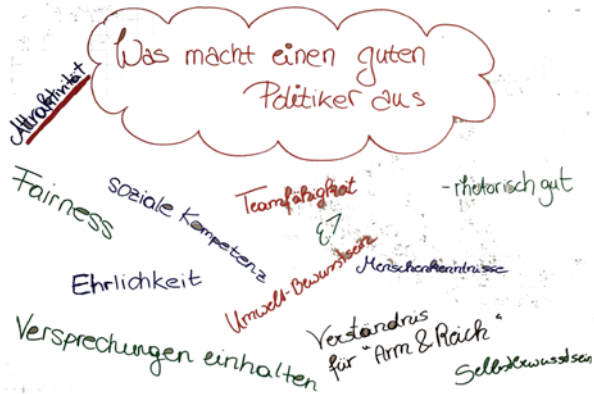 Was macht einen guten
Politiker aus
Attraktivität
Fairness
soziale Kompetenz
Teamfähigkeit
- rhetorisch gut
Ehrlichkeit
Umwelt-Bewusstsein
Menschenkenntnisse
Versprechungen einhalten
Verständnis
für "Arm & Reich"
Selbstbewusstsein